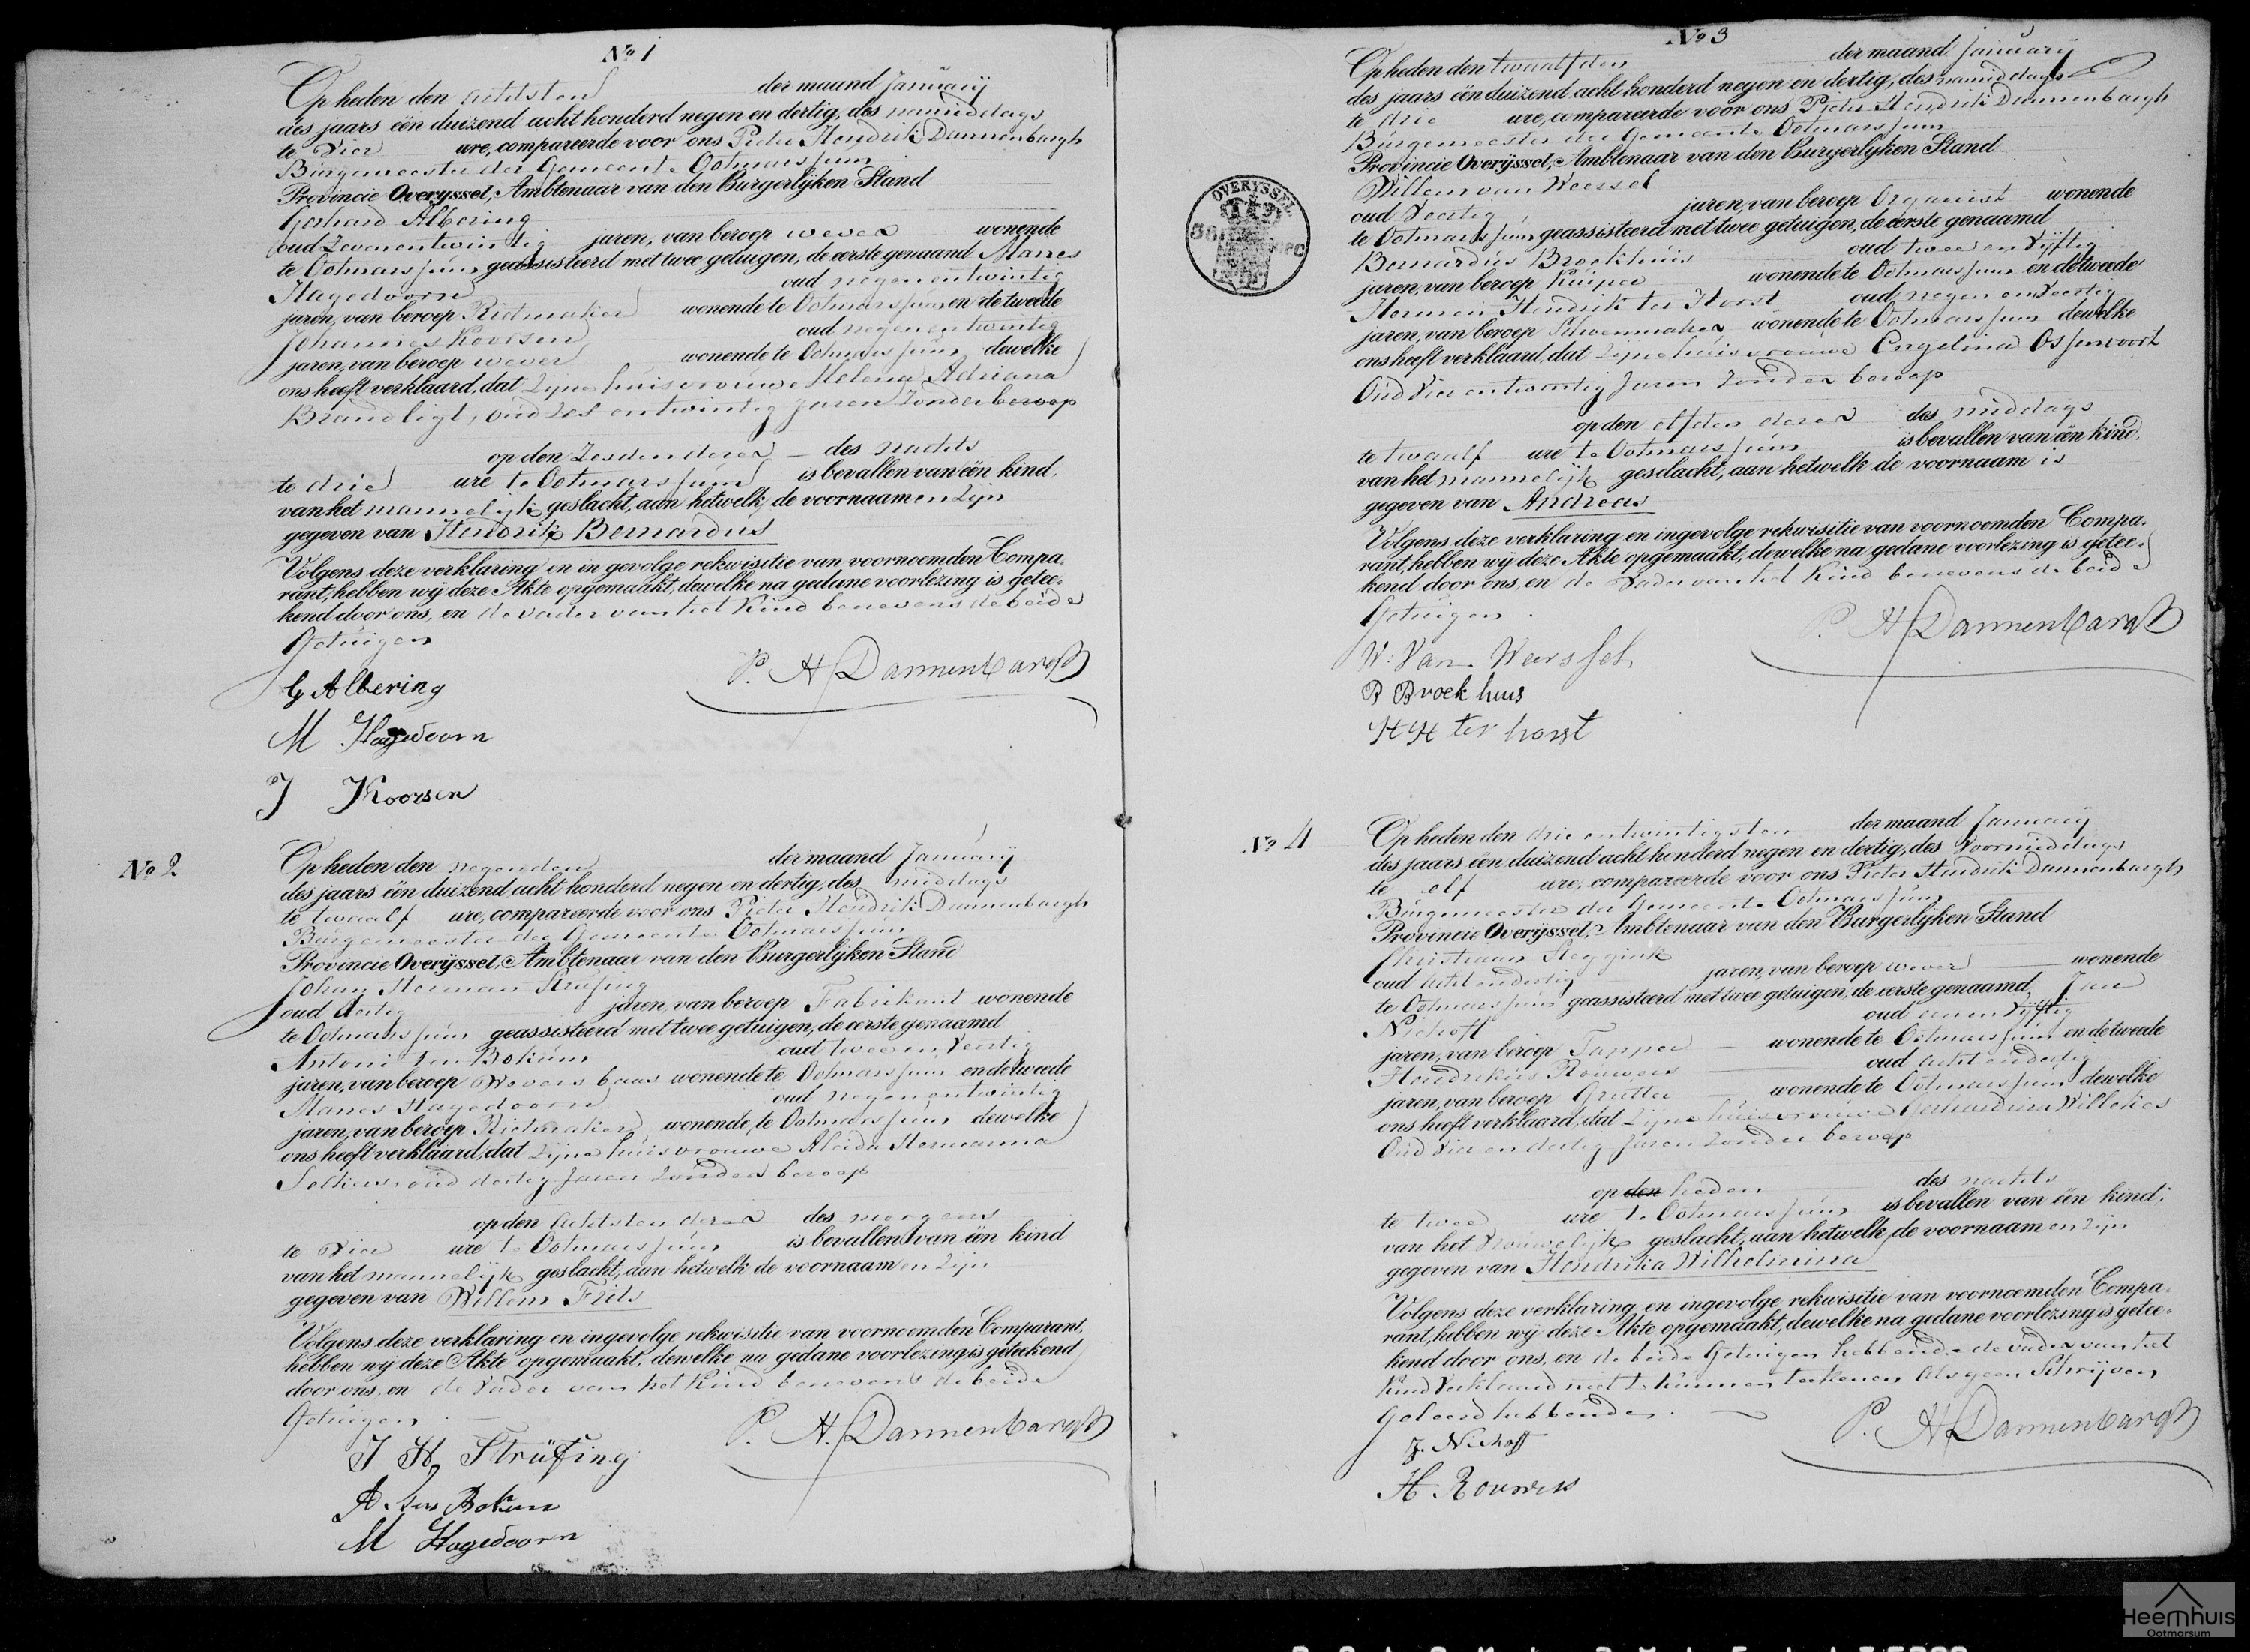 No 1
Op heden den achtsten der maand January
des jaars één duizend acht honderd negen en dertig, des namiddags
te Vier ure, compareerde voor ons Pieter Hendrik Dannenbargh
Burgemeester der Gemeente Ootmarssum
Provincie Overijssel, Ambtenaar van den Burgerlijken Stand
Gerhard Albering
oud Zevenentwintig jaren, van beroep wever wonende
te Ootmarssum geassisteerd met twee getuigen, de eerste genaamd Mannes
Hagedoorn oud negenentwintig
jaren, van beroep Rietmaker wonende te Ootmarssum en de tweede
Johannes Koorsen oud negenentwintig
jaren, van beroep wever wonende te Ootmarssum dewelke
ons heeft verklaard, dat Zijne huisvrouwe Helena Adriana
Brandligt, oud Zes entwintig Jaren Zonder beroep
op den Zesden dezer des nachts
te drie ure te Ootmarssum is bevallen van één kind.
van het mannelijk geslacht, aan hetwelk de voornaamen zijn
gegeven van Hendrik Bernardus
Volgens deze verklaring en in gevolge rekwisitie van voornoemden Compa-
rant, hebben wij deze Akte opgemaakt, dewelke na gedane voorlezing is getee-
kend door ons, en de vader van het Kind benevens de beide
Getuigen
P. H. Dannenbargh
G Albering
M Hagedoorn
J Koorsen
No 2
Op heden den negenden der maand January
des jaars één duizend acht honderd negen en dertig, des middags
te twaalf ure, compareerde voor ons Pieter Hendrik Dannenbargh
Burgemeester der Gemeente Ootmarssum
Provincie Overijssel, Ambtenaar van den Burgerlijken Stand
Johan Herman Strüfing
oud dertig jaren, van beroep Fabrikant wonende
te Ootmarssum geassisteerd met twee getuigen, de eerste genaamd
Antoni ten Bokum oud twee en Veertig
jaren, van beroep Wevers baas wonende te Ootmarssum en de tweede
Mannes Hagedoorn oud negenentwintig
jaren, van beroep Rietmaker wonende te Ootmarssum dewelke
ons heeft verklaard, dat Zijne huisvrouwe Aleida Hermanna
oud dertig Jaren Zonder beroep
op den achtsten dezer des morgens
te Vier ure te Ootmarssum is bevallen van één kind
van het mannelijk geslacht, aan hetwelk de voornaamen zijn
gegeven van Willem Frits
Volgens deze verklaring en ingevolge rekwisitie van voornoemden Comparant,
hebben wij deze Akte opgemaakt, dewelke na gedane voorlezing is geteekend
door ons, en de Vader van het Kind benevens de beide
Getuigen
P. H. Dannenbargh
J H Strüfing
A. ten Bokum
M Hagedoorn
No 3
Op heden den twaalfden der maand January
des jaars één duizend acht honderd negen en dertig, des namiddags
te drie ure, compareerde voor ons Pieter Hendrik Dannenbargh
Burgemeester der Gemeente Ootmarssum
Provincie Overijssel, Ambtenaar van den Burgerlijken Stand
Willem van Weersel
oud Veertig jaren, van beroep Organist wonende
te Ootmarssum geassisteerd met twee getuigen, de eerste genaamd
Bernardus Broekhuis oud twee en Vijftig
jaren, van beroep Kuiper wonende te Ootmarssum en de tweede
Hermen Hendrik ter Horst oud negen en Veertig
jaren, van beroep Schoenmaker wonende te Ootmarssum dewelke
ons heeft verklaard, dat Zijne huisvrouwe Engelina Ossenvoort
Oud Vier entwintig Jaren Zonder beroep
op den elfden dezer des middags
te twaalf ure te Ootmarssum is bevallen van één kind.
van het mannelijk geslacht, aan hetwelk de voornaam is
gegeven van Andreas
Volgens deze verklaring en ingevolge rekwisitie van voornoemden Compa-
rant, hebben wij deze Akte opgemaakt, dewelke na gedane voorlezing is getee-
kend door ons, en de Vader van het Kind benevens de beide
Getuigen.
P. H. Dannenbargh
W: Van Weerssel
B Broekhuis
H H ter horst
OVERYSSEL
No 4
Op heden den drie entwintigsten der maand January
des jaars één duizend acht honderd negen en dertig, des Voormiddags
te elf ure, compareerde voor ons Pieter Hendrik Dannenbargh
Burgemeester der Gemeente Ootmarssum
Provincie Overijssel, Ambtenaar van den Burgerlijken Stand
Christiaan Steggink
oud acht endertig jaren, van beroep wever wonende
te Ootmarssum geassisteerd met twee getuigen, de eerste genaamd Jan
Niehoff oud een en Vijftig
jaren, van beroep Tapper wonende te Ootmarssum en de tweede
Hendrikus Rouwers oud acht endertig
jaren, van beroep Grutter wonende te Ootmarssum dewelke
ons heeft verklaard, dat Zijne huisvrouwe Gerhardina Willekes
Oud Vier en dertig Jaren Zonder beroep
op den heden des nachts
te twee ure te Ootmarssum is bevallen van één kind;
van het Vrouwelijk geslacht, aan hetwelk de voornaamen zijn
gegeven van Hendrika Wilhelmina
Volgens deze verklaring en ingevolge rekwisitie van voornoemden Compa-
rant, hebben wij deze Akte opgemaakt, dewelke na gedane voorlezing is getee-
kend door ons, en de beide Getuigen hebbende de vader van het
Kind Verklaard niet te kunnen teekenen als geen Schrijven
Geleerd hebbende.
P. H. Dannenbargh
J. Niehoff
H Rouwers
Heemhuis
Ootmarsum